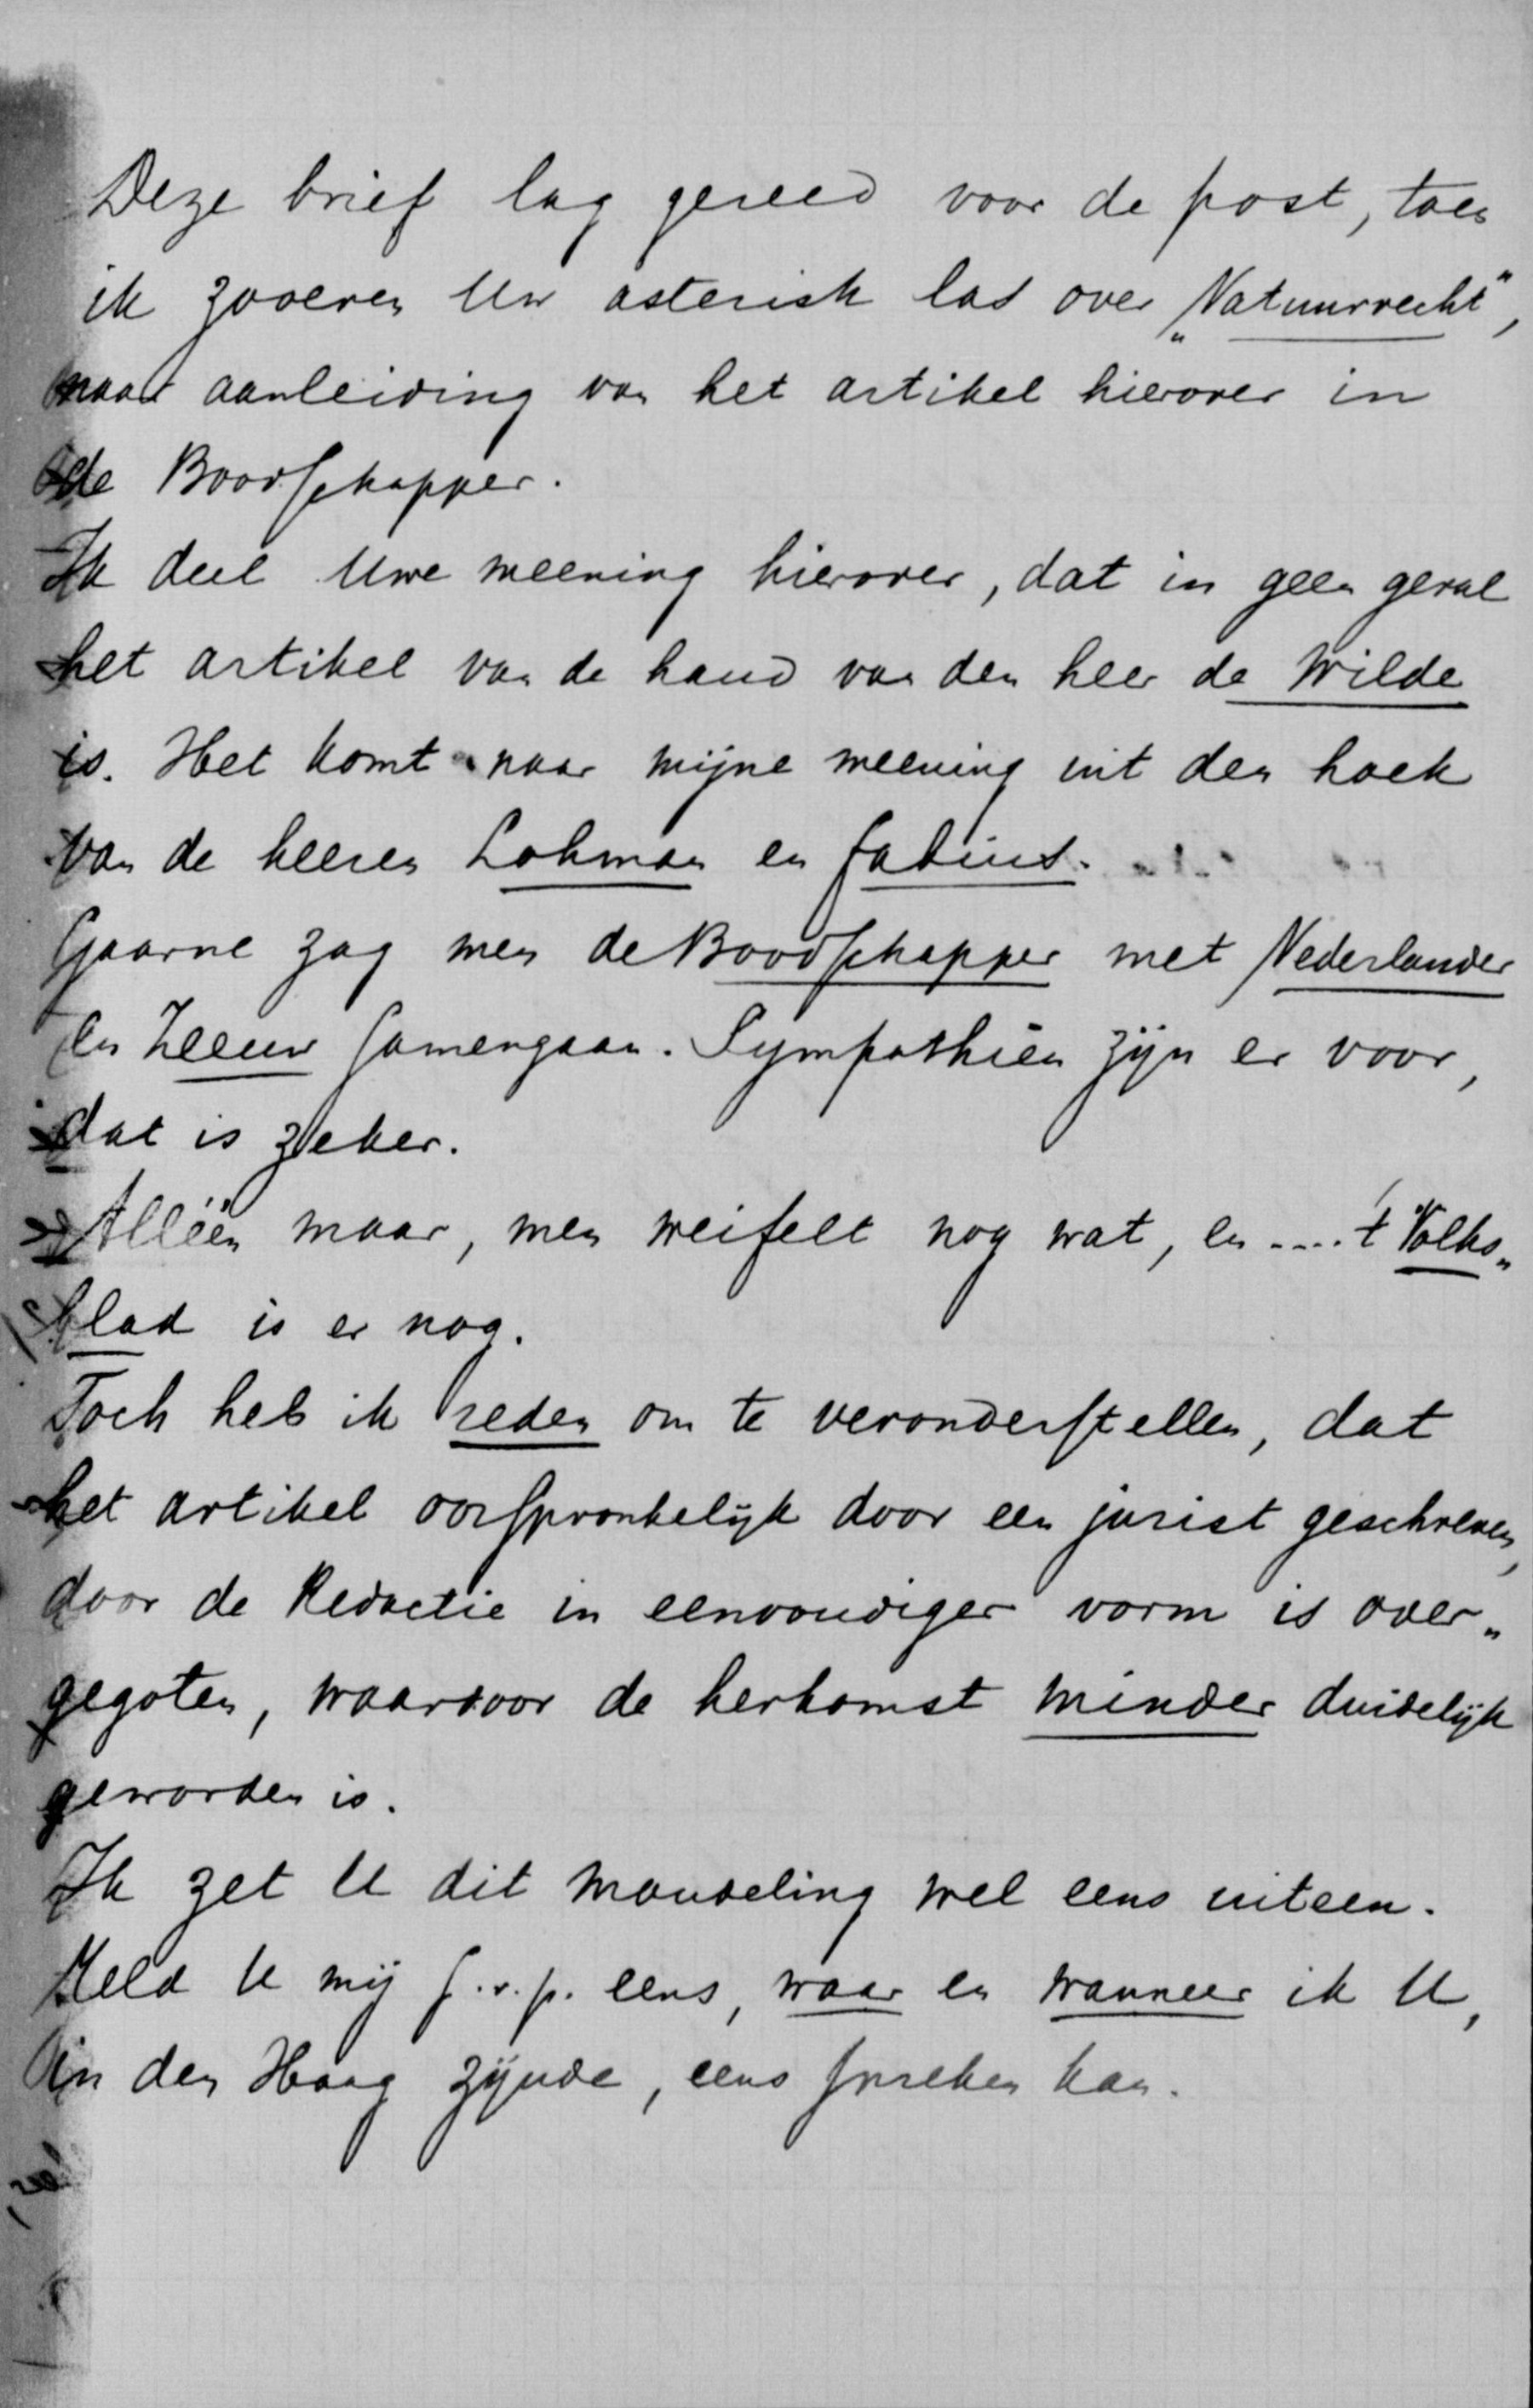 Deze brief lag gereed voor de post, toen
ik zooeven Uw asterisk las over „Natuurrecht”,
naar aanleiding van het artikel hierover in
de Boodschapper.
Ik deel Uwe meening hierover, dat in geen geval
het artikel van de hand van den heer de Wilde
is. Het komt naar mijne meening uit den hoek
van de heeren Lohman en Fabius.
Gaarne zag men de Boodschapper met Nederlander
en Zeeuw samengaan. Sympathiën zijn er voor,
dat is zeker.
Alléén maar, men weifelt nog wat, en .... 't Volks„
blad is er nog.
Toch heb ik reden om te veronderstellen, dat
het artikel oorspronkelijk door een jurist geschreven,
door de Redactie in eenvoudiger vorm is over„
gegoten, waardoor de herkomst minder duidelijk
geworden is.
Ik zet U dit mondeling wel eens uiteen.
Meld U mij s.v.p. eens, waar en wanneer ik U,
in den Haag zijnde, eens spreken kan.